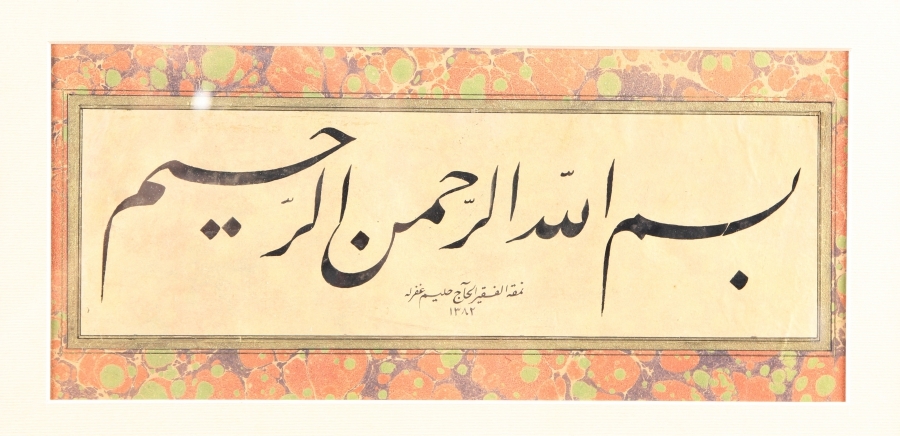 بسم الله الرحمن الرحيم
نمقه الفقير الحاج حليم غفرله
١٣٨٢